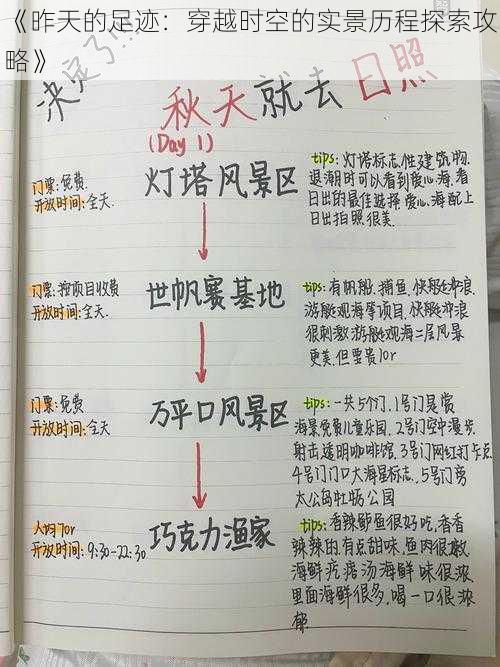 《昨天的足迹：穿越时空的实景历程探索攻
略》
决定了!!!
秋天就去日照
(Day 1)
门票:免费.
开放时间:全天.
灯塔风景区
tips: 灯塔标志性建筑物.
退潮时可以看到爱心海,看
日出的最佳选择.爱心海配上
日出拍照很美.
门票:按项目收费
开放时间:全天.
世帆赛基地
tips: 有帆船、捕鱼、快艇冲浪、
游艇观海等项目,快艇冲浪
很刺激.游艇观海二层风景
更美.但要贵10r
门票:免费
开放时间:全天
万平口风景区
tips: 一共5个门,1号门是赏
海景免费儿童乐园、2号门空中漫步、
射击,透明咖啡馆、3号门网红打卡点
4号门门口大海星标志、5号门旁
太公岛牡蛎公园
人均70r
开放时间:9:30-22:30
巧克力渔家
tips: 香辣鲈鱼很好吃,香香
辣辣的,有点甜味,鱼肉很嫩
海鲜疙瘩汤海鲜味很浓
里面海鲜很多,喝一口很浓
郁